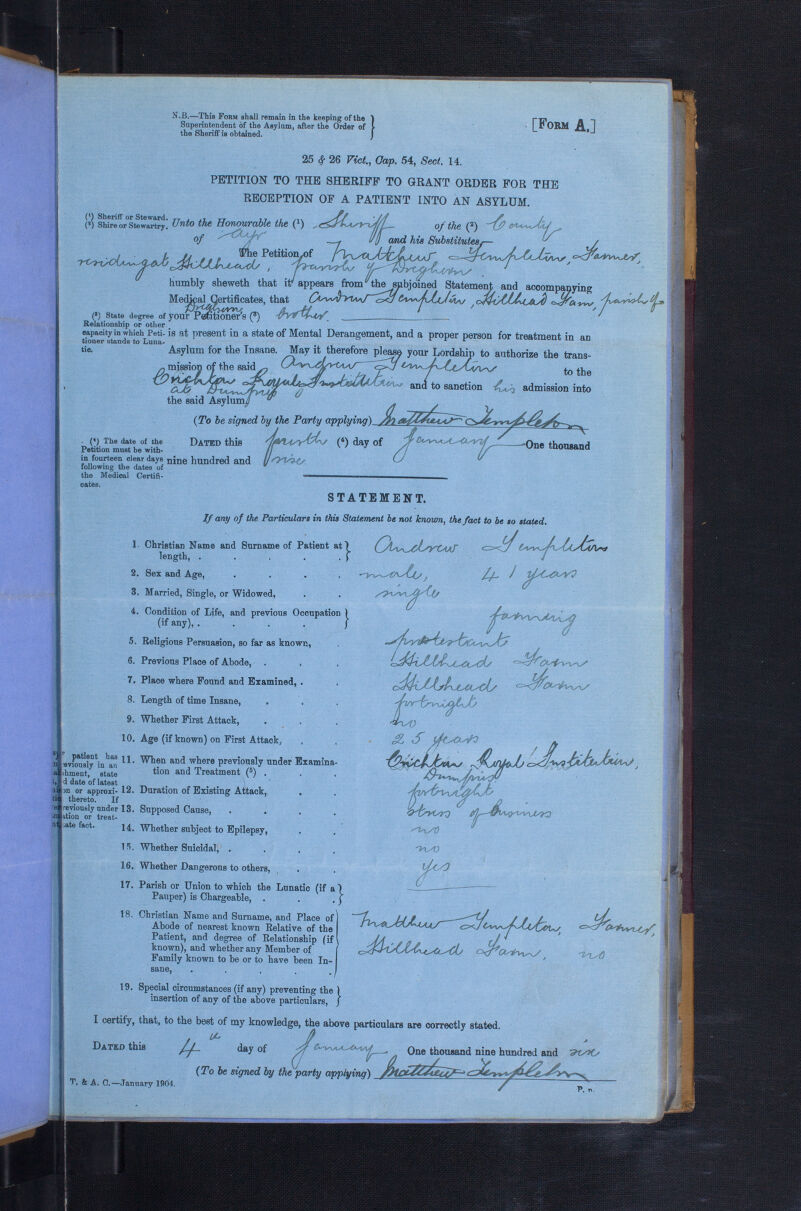 N.B.—This Form shall remain in the keeping of the
Superintendent of the Asylum, after the Order of
the Sheriff is obtained.
[Form A.]
25 & 26 Vict., Cap. 54, Sect. 14.
PETITION TO THE SHERIFF TO GRANT ORDER FOR THE
RECEPTION OF A PATIENT INTO AN ASYLUM.
(1) Sheriff or Steward.
(2) Shire or Stewartry.
Unto the Honourable the (1) Sheriff of the (2) County
of Ayr and his Substitutes
The Petition of Matthew Templeton, Farmer,
residing at Hillhead, parish of Dreghorn
humbly sheweth that it appears from the subjoined Statement and accompanying
Medical Certificates, that Andrew Templeton, Hillhead Farm, parish of
Dreghorn
your Petitioner's (3) brother.
(3) State degree of
Relationship or other
capacity in which Peti-
tioner stands to Luna-
tic.
is at present in a state of Mental Derangement, and a proper person for treatment in an
Asylum for the Insane. May it therefore please your Lordship to authorize the trans-
mission of the said Andrew Templeton to the
Crichton Royal Institution and to sanction his admission into
at Dumfries
the said Asylum.
(To be signed by the Party applying) Matthew Templeton
(4) The date of the
Petition must be with-
in fourteen clear days
following the dates of
the Medical Certifi-
cates.
Dated this fourth (4) day of January One thousand
nine hundred and six
STATEMENT.
If any of the Particulars in this Statement be not known, the fact to be so stated.
1. Christian Name and Surname of Patient at
length, . Andrew Templeton
2. Sex and Age, male, 41 years
3. Married, Single, or Widowed, single
4. Condition of Life, and previous Occupation
(if any), . farming
5. Religious Persuasion, so far as known, protestant
6. Previous Place of Abode, . Hillhead Farm
7. Place where Found and Examined, . Hillhead Farm
8. Length of time Insane, fortnight
9. Whether First Attack, no
10. Age (if known) on First Attack, 25 years
patient has
previously in an
state
d date of latest
or approxi-
thereto. If
previously under
ation or treat-
ate fact.
11. When and where previously under Examina-
tion and Treatment (5) . Crichton Royal Institution,
Dumfries
12. Duration of Existing Attack, fortnight
13. Supposed Cause, stress of business
14. Whether subject to Epilepsy, no
15. Whether Suicidal, . no
16. Whether Dangerous to others, yes
17. Parish or Union to which the Lunatic (if a
Pauper) is Chargeable, .
18. Christian Name and Surname, and Place of
Abode of nearest known Relative of the
Patient, and degree of Relationship (if
known), and whether any Member of
Family known to be or to have been In-
sane, . Matthew Templeton, Farmer,
Hillhead Farm. no
19. Special circumstances (if any) preventing the
insertion of any of the above particulars,
I certify, that, to the best of my knowledge, the above particulars are correctly stated.
Dated this 4th day of January One thousand nine hundred and six
(To be signed by the party applying) Matthew Templeton
T. & A. C.—January 1904.
P. n.